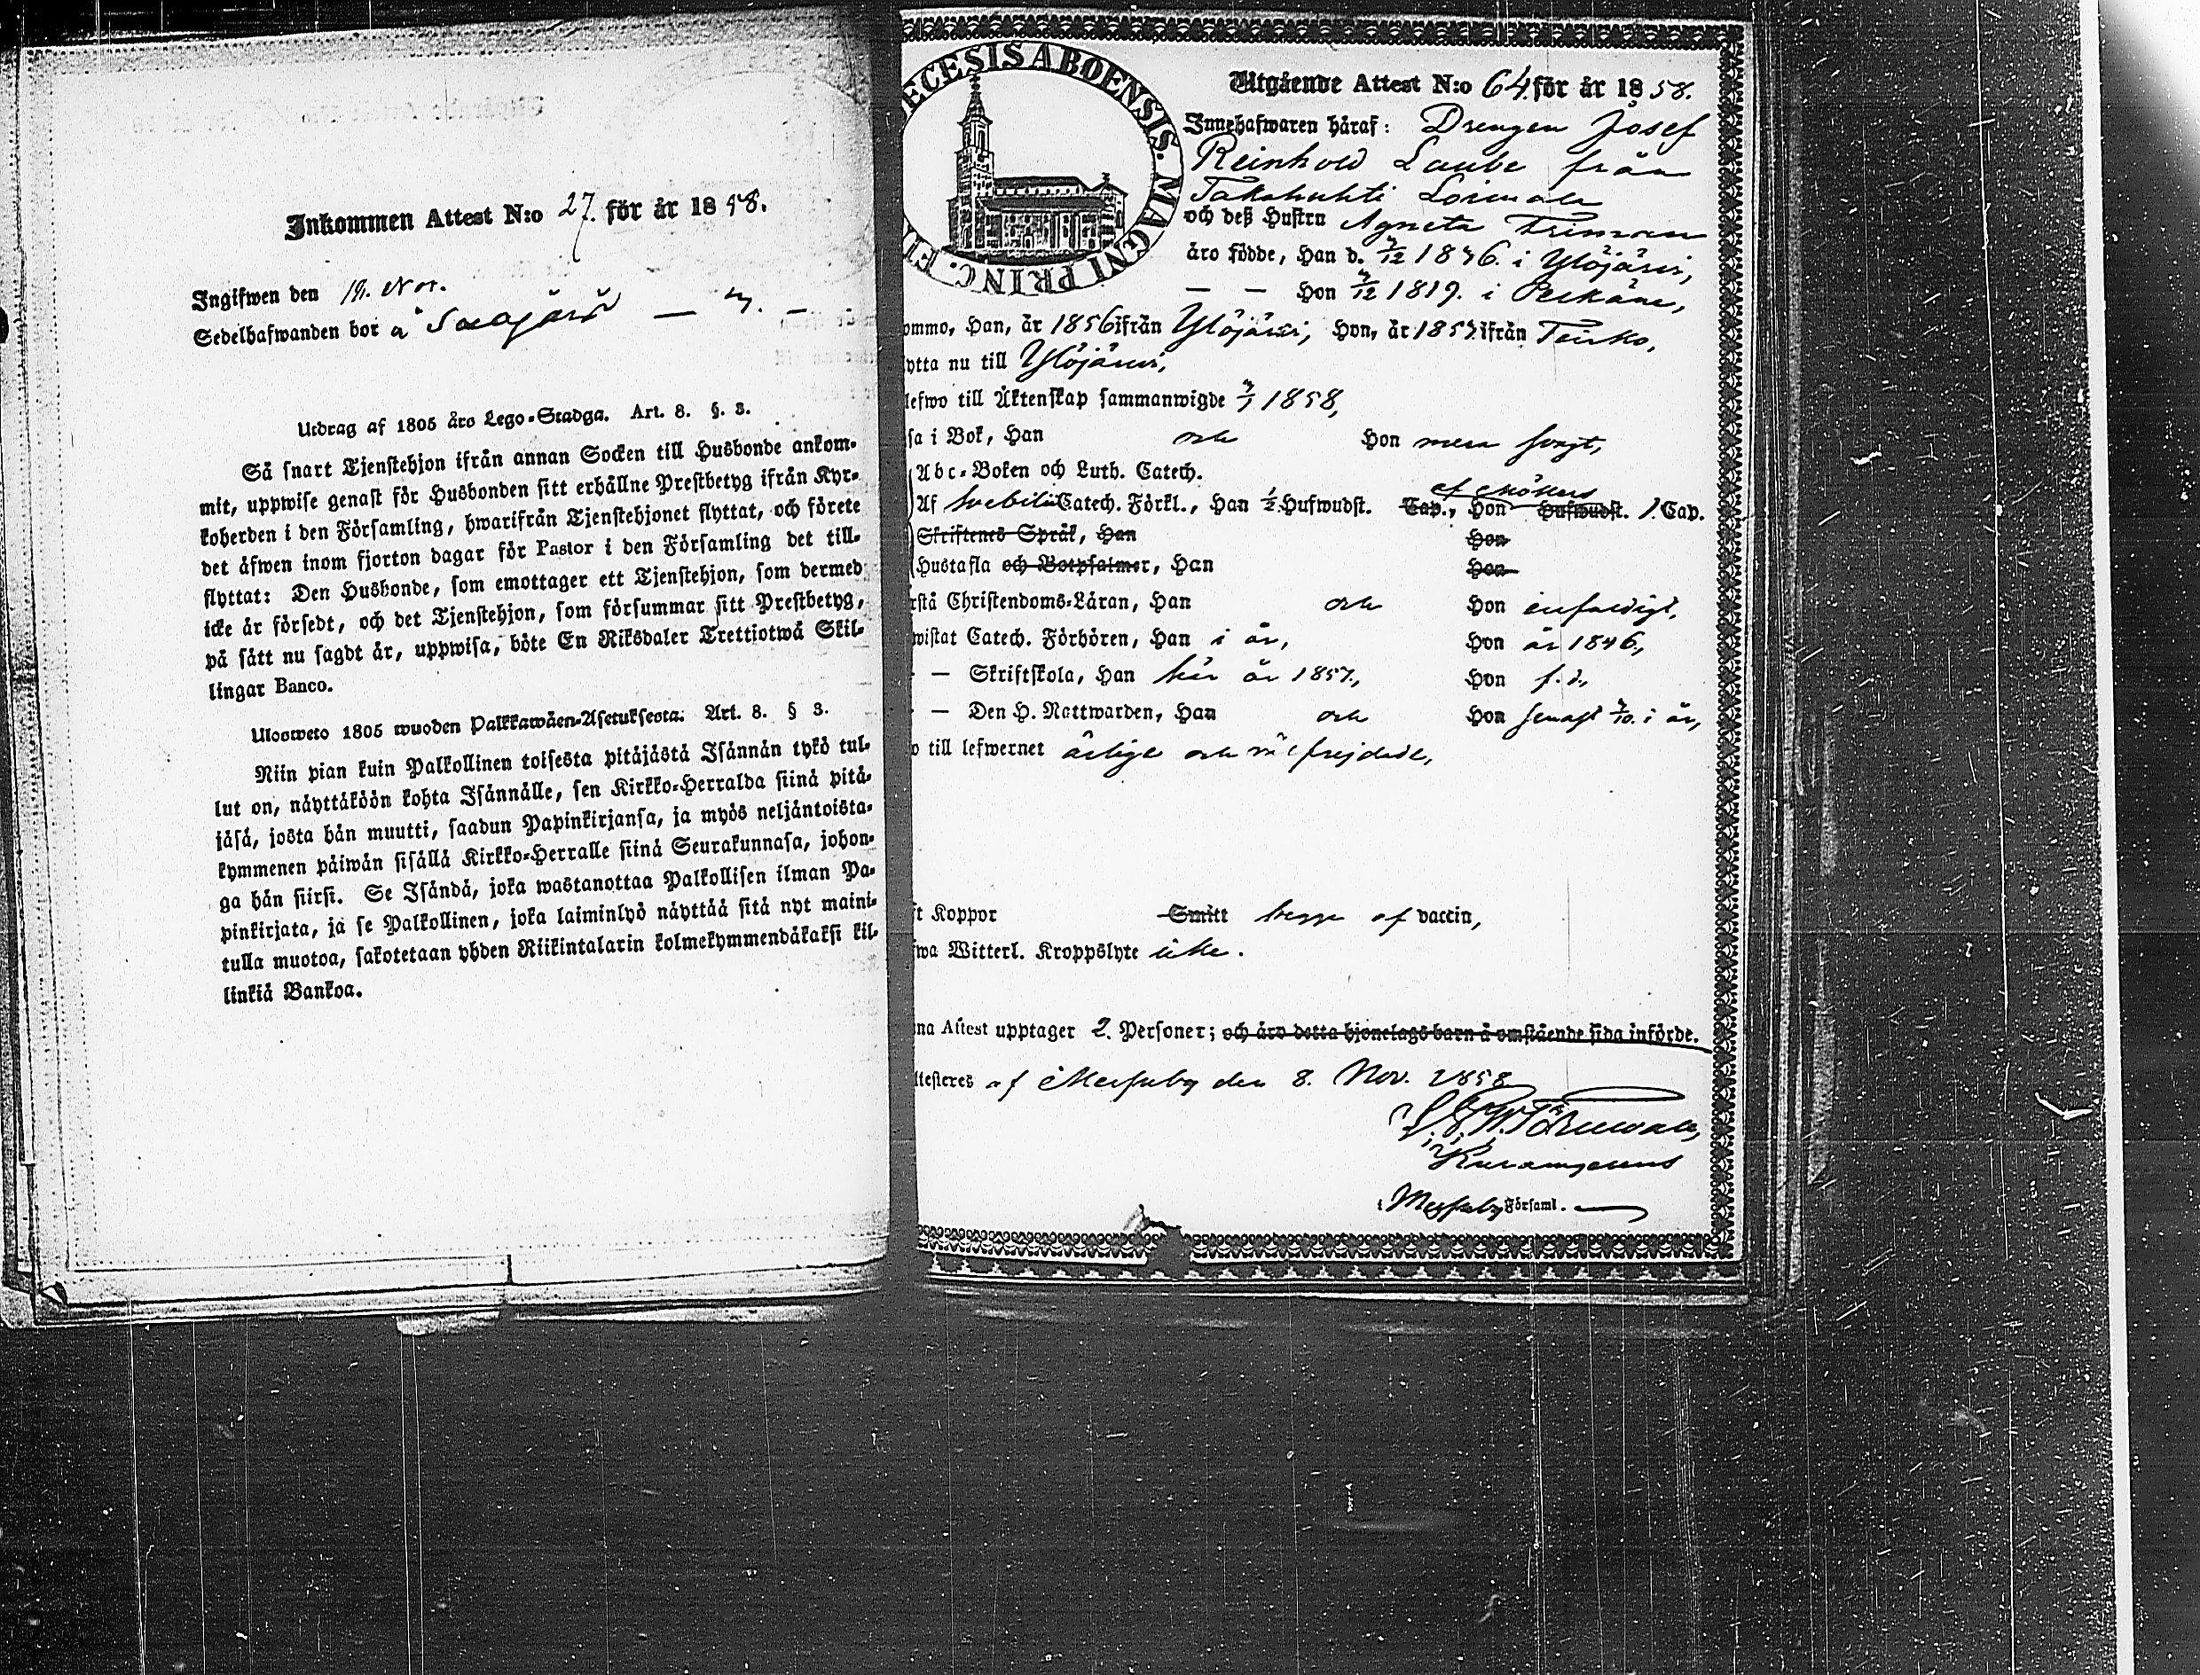 Inkommen Attest N:o 27. för år 1858.
Ingifwen den 18. Nov.
Sedelhafwanden bor å
Utdrag af 1805 års Lego-Stadga. Art. 8. §. 3.
Så snart Tjenstehjon ifrån annan Socken till Husbonde ankom-
mit, uppwise genast för Husbonden sitt erhållne Prestbetyg ifrån Kyr-
koherden i den Församling, hwarifrån Tjenstehjonet flyttat, och förete
det åfwen inom fjorton dagar för Pastor i den Församling det till-
flyttat: Den Husbonde, som emottager ett Tjenstehjon, som dermed
icke år försedt, och det Tjenstehjon, som försummar sitt Prestbetyg,
på sått nu sagdt år, uppwisa, böte En Riksdaler Trettiotwå Skil-
lingar Banco.
Ulosweto 1805 wuoden Palkkawåen-Asetuksesta. Art. 8. § 3.
Niin pian kuin Palkollinen toisesta pitåjåstå Isånnån tykö tul-
lut on, nåyttåköön kohta Isånnålle, sen Kirkko-Herralda siinå pitå-
jåså, josta hån muutti, saadun Papinkirjansa, ja myös neljåntoista-
kymmenen påiwån sisållå Kirkko-Herralle siinå Seurakunnasa, johon-
ga hån siirsi. Se Isåndå, joka wastanottaa Palkollisen ilman Pa-
pinkirjata, ja se Palkollinen, joka laiminlyö nåyttåå sitå nyt maini-
tulla muotoa, sakotetaan yhden Riikintalarin kolmekymmendåkaksi kil-
linkiå Bankoa.
ECESIS ABOENSIS. MAGNI PRINC. FI
Utgående Attest N:o 64. för år 1858.
Innehafwaren håraf: Drengen Josef
Reinhold Laube från
Takahuhti
och deß Hustru Agneta
åro födde, Han d. 7/12 1836. i Ylöjärvi,
— — Hon 7/12 1819. i
ommo, Han, år 1856 ifrån Ylöjärvi, Hon, år 1857 ifrån Teisko,
ytta nu till Ylöjärvi,
lefwo till Åktenskap sammanwigde 1858,
sa i Bok, Han och Hon mera svagt,
Abc-Boken och Luth. Catech.
af Möllers
Af Svebilii Catech. Förkl., Han ½ Hufwudst. Cap., Hon Hufwudst. 1. Cap.
Skriftenes Språk, Han Hon
Hustafla och Botpsalmer, Han Hon
rstå Christendoms-Låran, Han och Hon enfaldigt,
wistat Catech. Förhören, Han i år, Hon år 1846,
— Skriftskola, Han här år 1857, Hon f. d.,
— Den H. Nattwarden, Han och Hon senast 3/10. i år,
o till lefwernet ärlige och väl frejdade,
ft Koppor Smitt begge af vaccin,
fwa Witterl. Kroppslyte icke.
na Attest upptager 2. Personer; och åro detta hjonelags barn å omstående sida införde.
ttesteres af Messuby den 8. Nov. 1858
i Messuby Församl.